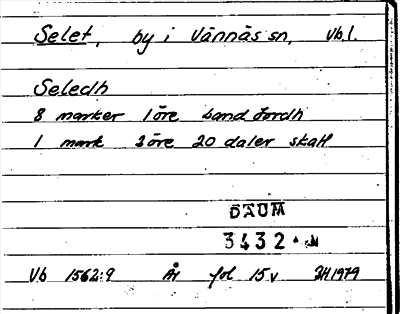 Selet, by i Vännäs sn, Vb.l.
Seledh
8 marker 1 öre land Jordh
1 mark 3 öre 20 daler skatt
DAUM
3432
Vb 1562:9 År fol 15v BH 1979